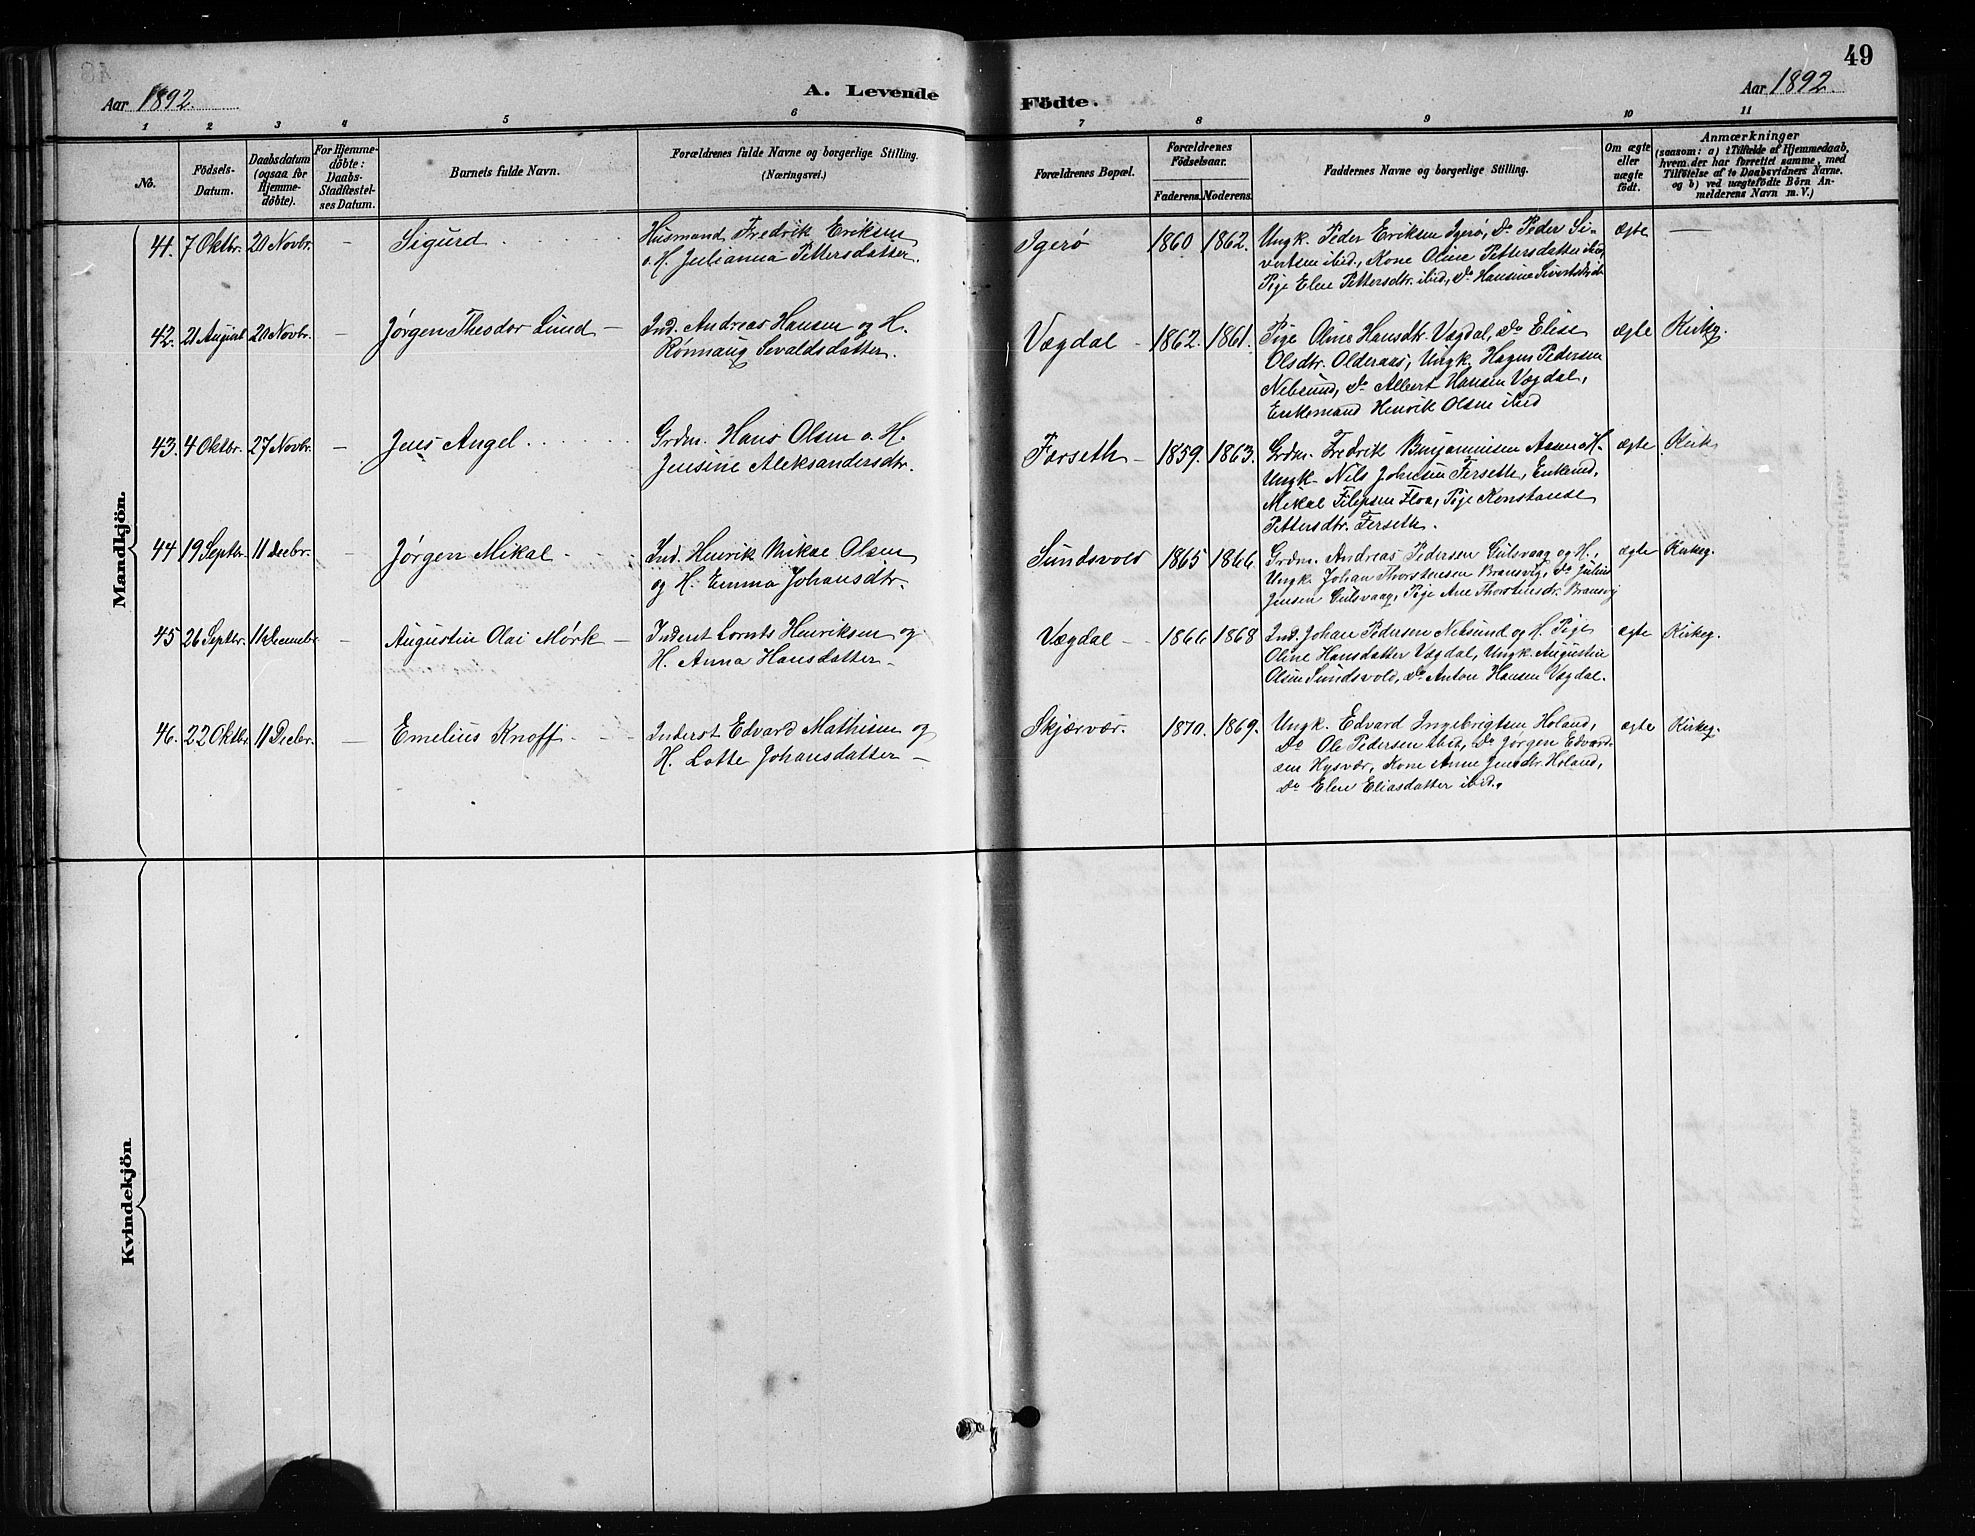 49
Aar 1892
A. Levende
Födte.
Aar 1892
1 2 3 4 5 6 7 8 9 10 11
No.
Födsels-
Datum.
Daabsdatum
(ogsaa for
Hjemme-
döbte).
For Hjemme-
döbte:
Daabs-
Stadfæstel-
ses Datum.
Barnets fulde Navn.
Forældrenes fulde Navne og borgerlige Stilling.
(Næringsvei.)
Forældrenes Bopæl.
Forældrenes
Födselsaar.
Faderens. Moderens.
Faddernes Navne og borgerlige Stilling.
Om ægte
eller
uægte
födt.
Anmærkninger
(saasom: a) i Tilfælde af Hjemmedaab,
hvem der har forrettet samme, med
Tilföielse af to Daabsvidners Navne.
og b) ved uægtefödte Börn An-
melderens Navn m. V.)
Mandkjön.
41. 7 Oktbr. 20 Novbr. — Sigurd
Husmand Fredrik Eriksen
o. H. Julianna Pettersdatter.
Igerø 1860 1862.
Ungk. Peder Eriksen Igerø, Do Peder Si-
vertsen ibid., Kone Oline Pettersdatter ibid,
Pige Elen Pettersdtr. ibid, Do Hansine
ægte —
42. 21 August 20 Novbr. — Jørgen Theodor Lund —
Ind. Andreas Hansen og H.
Rønnaug Sevaldsdatter.
Vægdal — 1862. 1861.
Pige Oline Hansdtr. Vægdal, do Elise
Olsdtr. Olderaas, Ungk. Hagen Pedersen
Nebsund, do Albert Hansen Vægdal,
Enkemand Henrik Olsen ibid
ægte Kirkeg.
43. 4 Oktbr. 27 Novbr. — Jens Angel
Grdm. Hans Olsen o. H.
Jensine Aleksandersdtr.
Færseth — 1859. 1863.
Grdm. Fredrik Benjaminsen H.
Ungk. Nils Johansen Ferseth, Enkemd,
Mikal Filipsen Floa, Pige Konstanse
Pettersdtr. Ferseth.
ægte Kirk
44 19 Septbr. 11 decbr. — Jørgen Mikal —
Ind. Henrik Mikal Olsen
og H. Emma Johansdtr.
Sundsvold 1865 1866.
Grdm. Andreas Pedersen Gulsvaag og H.,
Ungk. Johan Thorstensen Bransvig, do Julius
Jensen Gulsvaag, Pige Ane Thorstensdtr. Bransvig
ægte Kirkeg.
45 26 Septbr. 11 decembr — Augustin Olai Mørk —
Inderst Lornts Henriksen og
H. Anna Hansdatter —
Vægdal — 1866 1868
Ind. Johan Pedersen Nebsund og H. Pige
Oline Hansdatter Vægdal, Ungk. Augustin
Olsen Sundsvold, do Anton Hansen Vægdal.
ægte Kirkeg.
46. 22 Oktbr. 11 Decbr. — Emelius Knoff
Inderst Edvard Mathisen og
H. Lotte Johansdatter —
Skjærvær. 1870. 1869.
Ungk. Edvard Ingebrigtsen Holand,
Do Ole Pedersen ibid, Do Jørgen Edvard-
sen Hysvær, Kone Anne Jensdtr. Holand,
do Elen Eliasdatter ibid.
ægte Kirkeg.
Kvindekjön